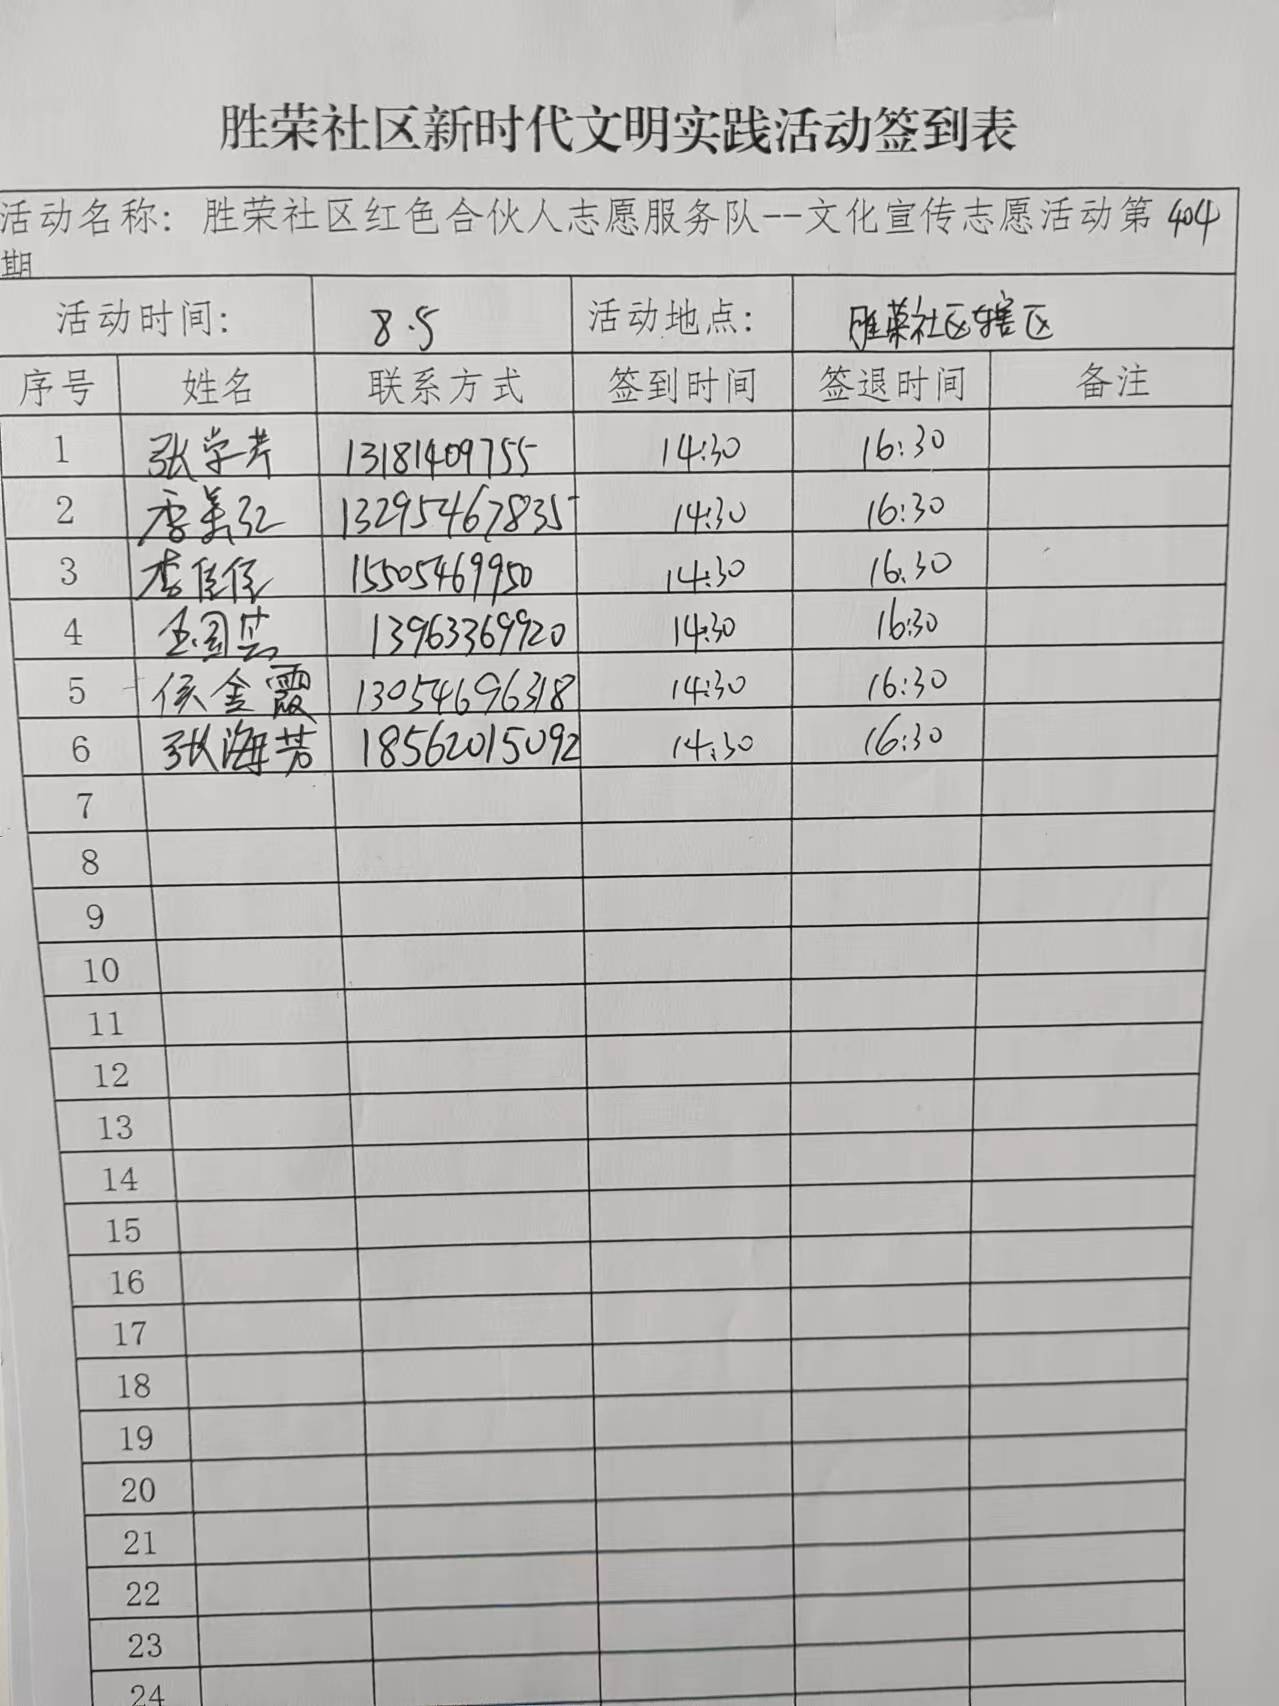 胜荣社区新时代文明实践活动签到表
活动名称：胜荣社区红色合伙人志愿服务队--文化宣传志愿活动第404
期
活动时间： 8.5 活动地点： 胜荣社区辖区
序号 姓名 联系方式 签到时间 签退时间 备注
1 张学芹 13181409755 14:30 16:30
2 李美红 13295467835 14:30 16:30
3 李佳佳 15505469950 14:30 16:30
4 王国芸 13963369920 14:30 16:30
5 侯金霞 13054696318 14:30 16:30
6 张海芳 18562015092 14:30 16:30
7
8
9
10
11
12
13
14
15
16
17
18
19
20
21
22
23
24